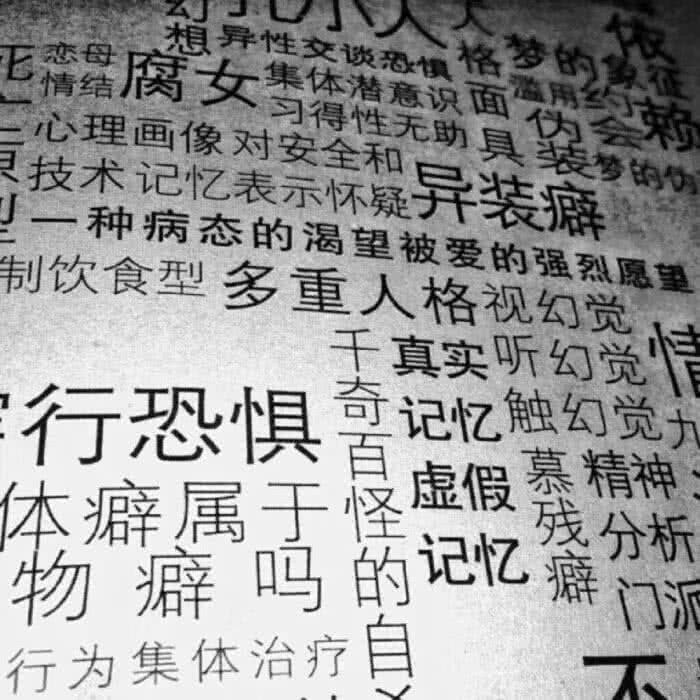 幻
小人
人
想异性交谈恐惧
恋母
情结
腐女
集体潜意识
习得性无助
格
面
具
梦的象征
滥用约会
伪装
依
赖
梦的伪
心理画像
对安全和
技术
记忆表示怀疑
异装癖
一种病态的渴望被爱的强烈愿望
制饮食型
多重人格
视幻觉
听幻觉
触幻觉
行恐惧
千奇百怪的自
真实
记忆
虚假
记忆
情
九
慕残癖
精神
分析
门派
体癖属于
物癖吗
行为集体治疗
不